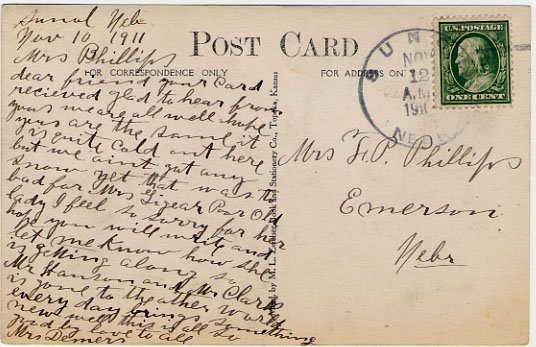 Sunol Nebr
Nov 10 1911
Mrs Phillips
dear friend your Card
recieved glad to hear from
you we are all well hope
yous are the same it
is quite Cold out here
but we aint got any
snow yet that was to
bad for Mrs Poor Old
lady I feel so sorry for her
hope you will write and
let me know how she
is getting along so
Mr Hanson and Mr Clark
is gone to the other world
every day brings something
new well this is all so
good by love to all
Mrs Demers
POST CARD
FOR CORRESPONDENCE ONLY
FOR ADDRESS ON
M. L. Book and Stationery Co., Topeka, Kansas
SUN
NOV
12
A.M.
191
NE
U.S. POSTAGE
ONE CENT
Mrs F. P. Phillips
Emerson
Nebr